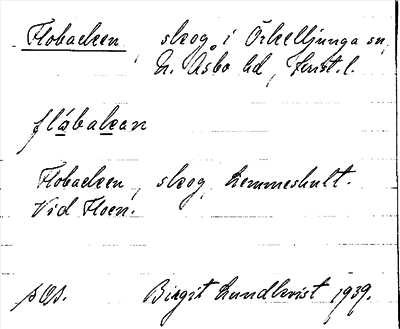 Flobacken, skog i Örkelljunga sn,
N. Åsbo hd, Krist. l.
flåbakan
Flobacken, skog, Lemmeshult.
Vid Floen.
pOS. Birgit Lundkvist 1939.